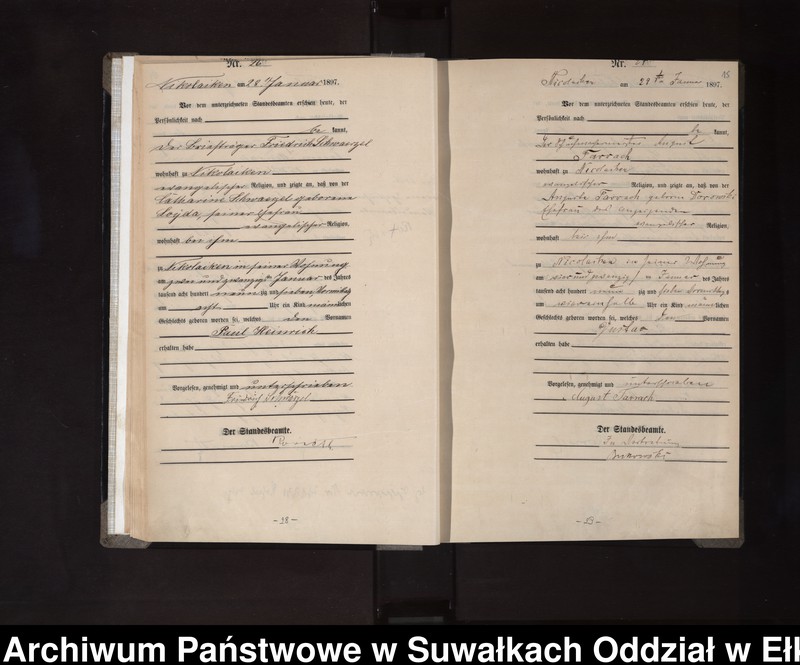 Nr. 26
Nikolaiken am 28 Januar 1897.
Vor dem unterzeichneten Standesbeamten erschien heute, der
Persönlichkeit nach
be kannt,
der Briefträger Friedrich Schwaezel
wohnhaft zu Nikolaiken
evangelischer Religion, und zeigte an, daß von der
Catharine Schwaezel geborene
seiner Ehefrau
evangelischer Religion,
wohnhaft bei ihm
zu Nikolaiken in seiner Wohnung
am zwanzigsten Januar des Jahres
tausend acht hundert neun zig und sieben Vormittag
um acht Uhr ein Kind männlichen
Geschlechts geboren worden sei, welches den Vornamen
Paul Heinrich
erhalten habe
Vorgelesen, genehmigt und unterschrieben
Friedrich
Der Standesbeamte.
- 28 -
Nr.
am 29 Januar 1897.
Vor dem unterzeichneten Standesbeamten erschien heute, der
Persönlichkeit nach
be kannt,
August
Tarrach
wohnhaft zu Nicolaiken
evangelischer Religion, und zeigte an, daß von der
Auguste Tarrach geborene
Ehefrau des Anzeigenden
evangelischer Religion,
wohnhaft bei ihm
zu Nicolaiken in seiner Wohnung
am Januar des Jahres
tausend acht hundert neun zig und sieben Vormittags
um Uhr ein Kind männlichen
Geschlechts geboren worden sei, welches den Vornamen
Gustav
erhalten habe
Vorgelesen, genehmigt und unterschrieben
August Tarrach
Der Standesbeamte.
In Vertretung
Bukowski
Archiwum Państwowe w Suwałkach Oddział w Ełk